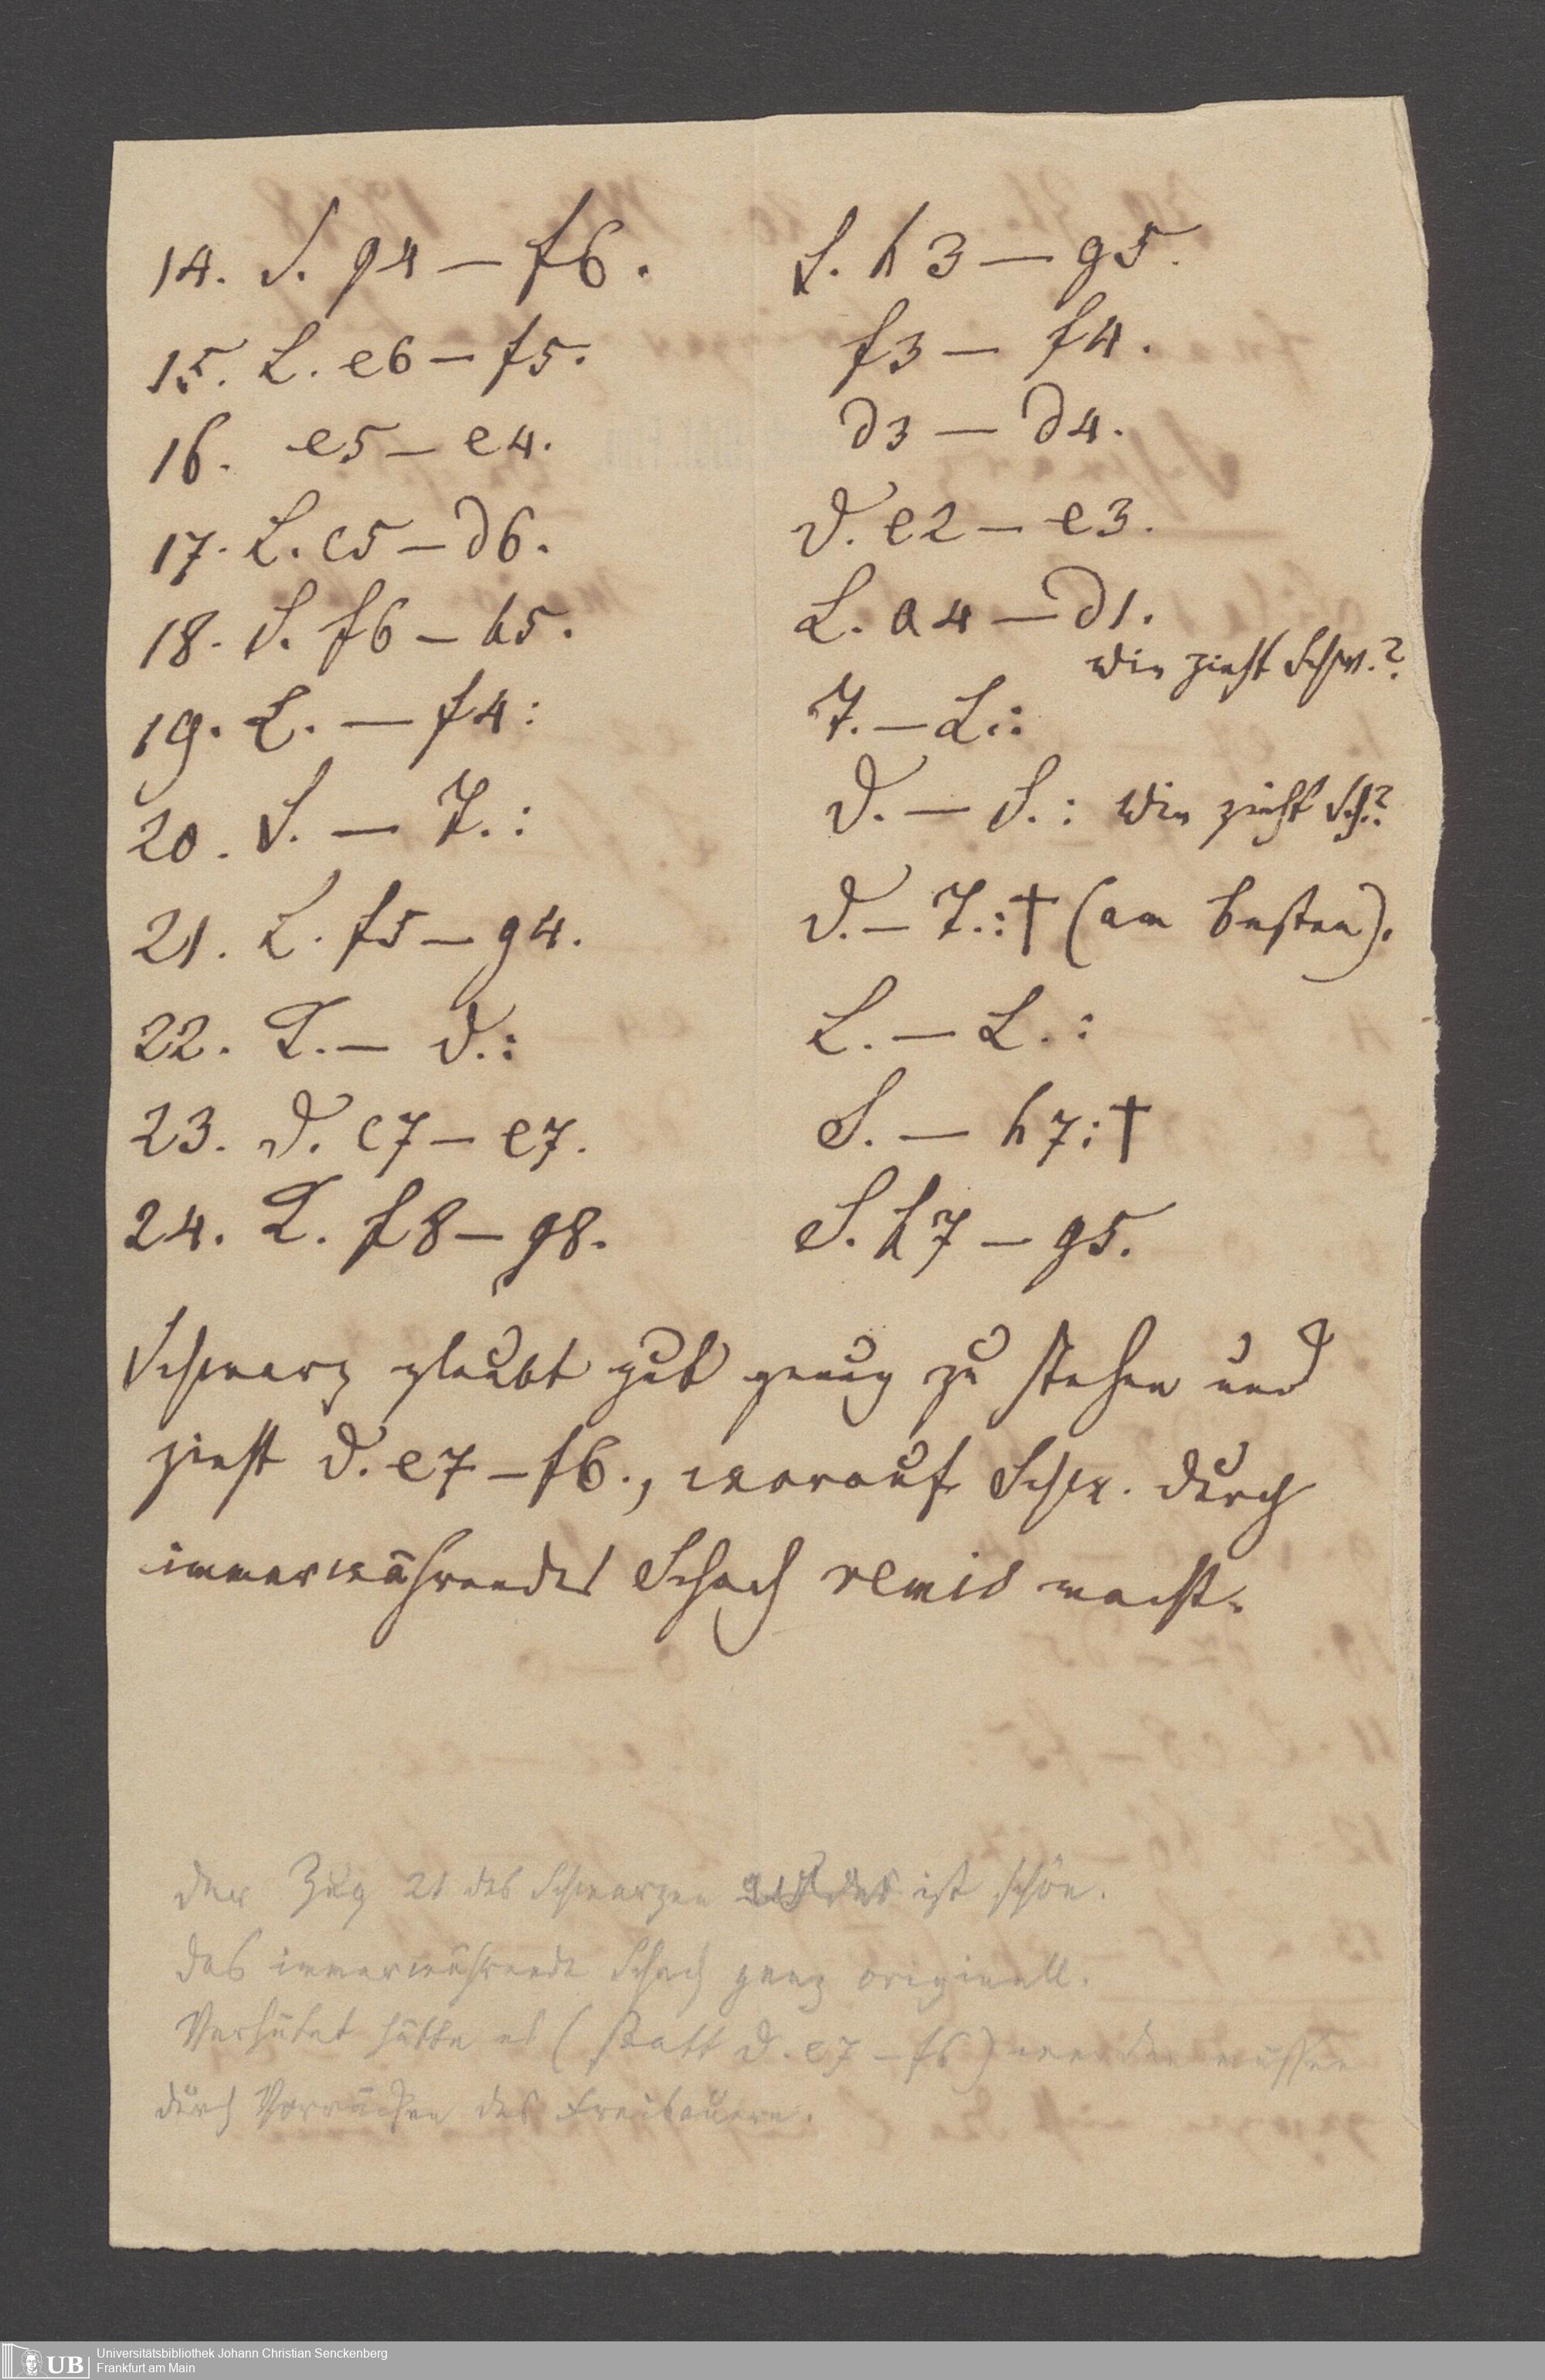 14. S. g4 — f6. S. h3 — g5.
15. L. e6 — f5. f3 — f4.
16. e5 — e4. d3 — d4.
17. L. c5 — d6. D. e2 — e3.
18. S. f6 — h5. L. a4 — d1.
Wie zieht Schw.?
19. L. — f4: T. — L.:
20. S. — T.: D. — S.: Wie zieht Sch.?
21. L. f5 — g4. D. — T.:† (am besten).
22. T. — D.: L. — L.:
23. D. c7 — e7. S. — h7:†
24. T. f8 — g8. S. h7 — g5.
Schwarz glaubt gut genug zu stehen und
zieht D. e7 — f6., worauf Schw. durch
immerwährendes Schach remis macht.
Der Zug 21 des Schwarzen ist schön.
Das immerwährende Schach ganz originell.
Verhütet hätte es (statt D. e7 — f6) werden müssen
durch Vorrücken des Freibauern.
UB Universitätsbibliothek Johann Christian Senckenberg
Frankfurt am Main